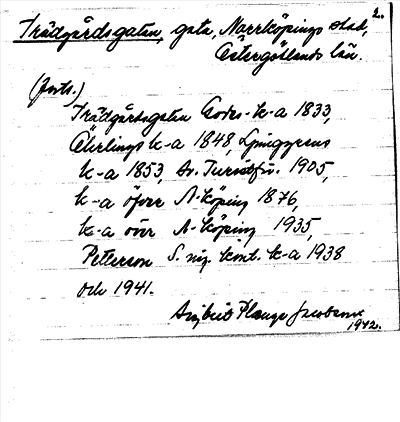 2.
Trädgårdsgatan, gata, Norrköpings stad,
Östergötlands län.
(forts.)
Trädgårdsgatan k-a 1833,
Öhrlings k-a 1848, Ljunggrens
k-a 1853, Sv. Turistför. 1905,
k-a öfver N-köping 1876,
k-a över N-köping 1935,
Petterson S. kont. k-a 1938
och 1941.
Sigbrit Plange Jacobson
1942.